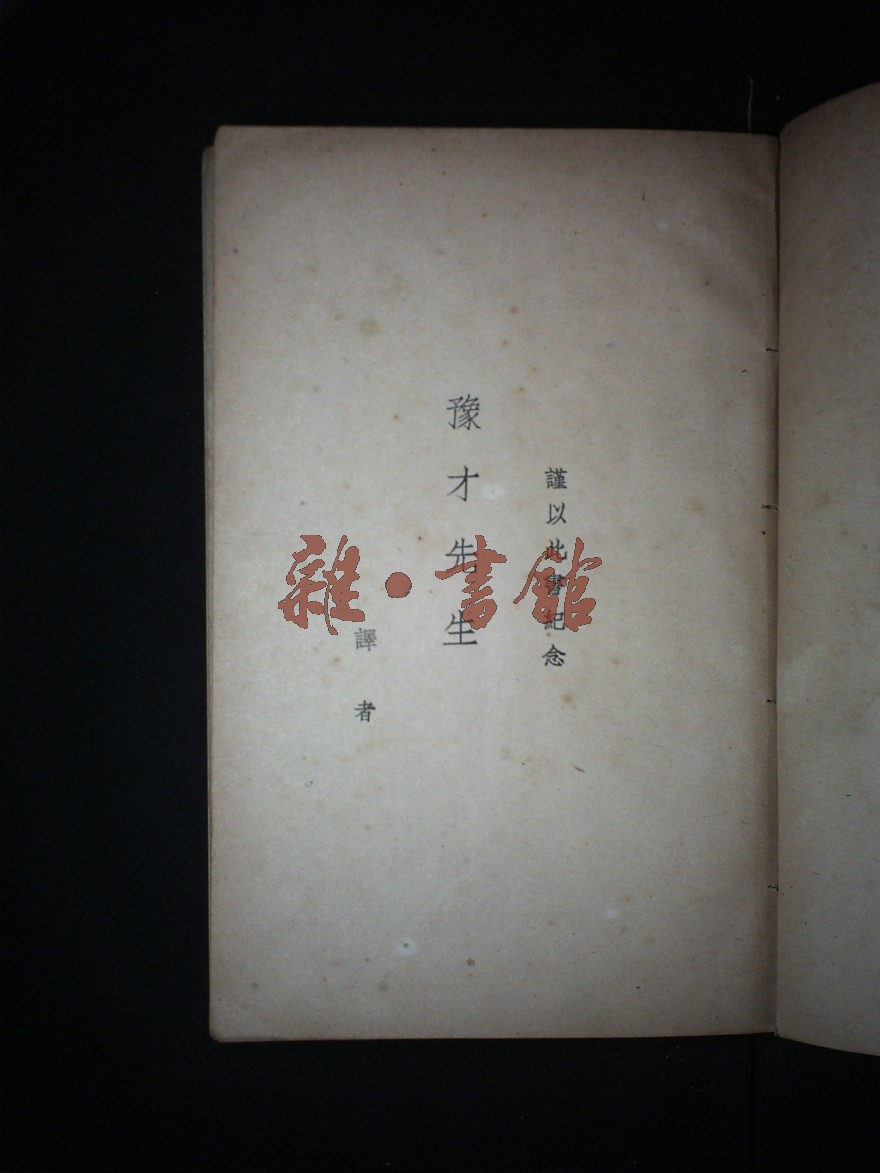 謹以此書紀念
豫才先生
譯者
雜·書館